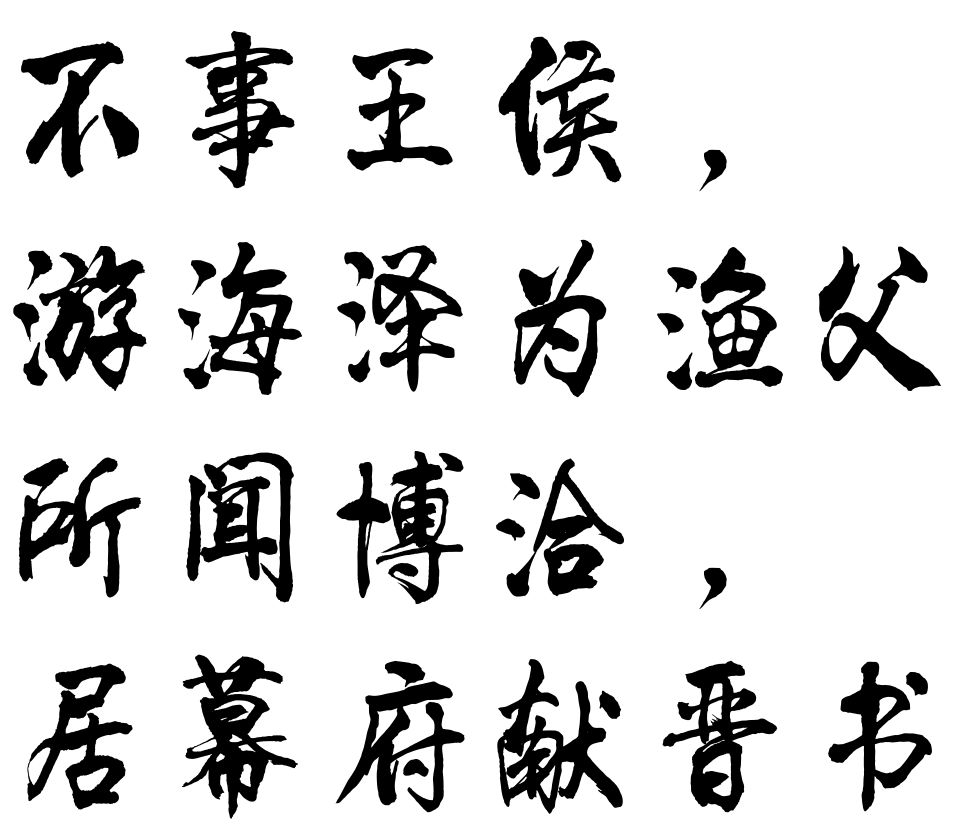 不事王侯，
游海泽为渔父
所闻博洽，
居幕府献晋书